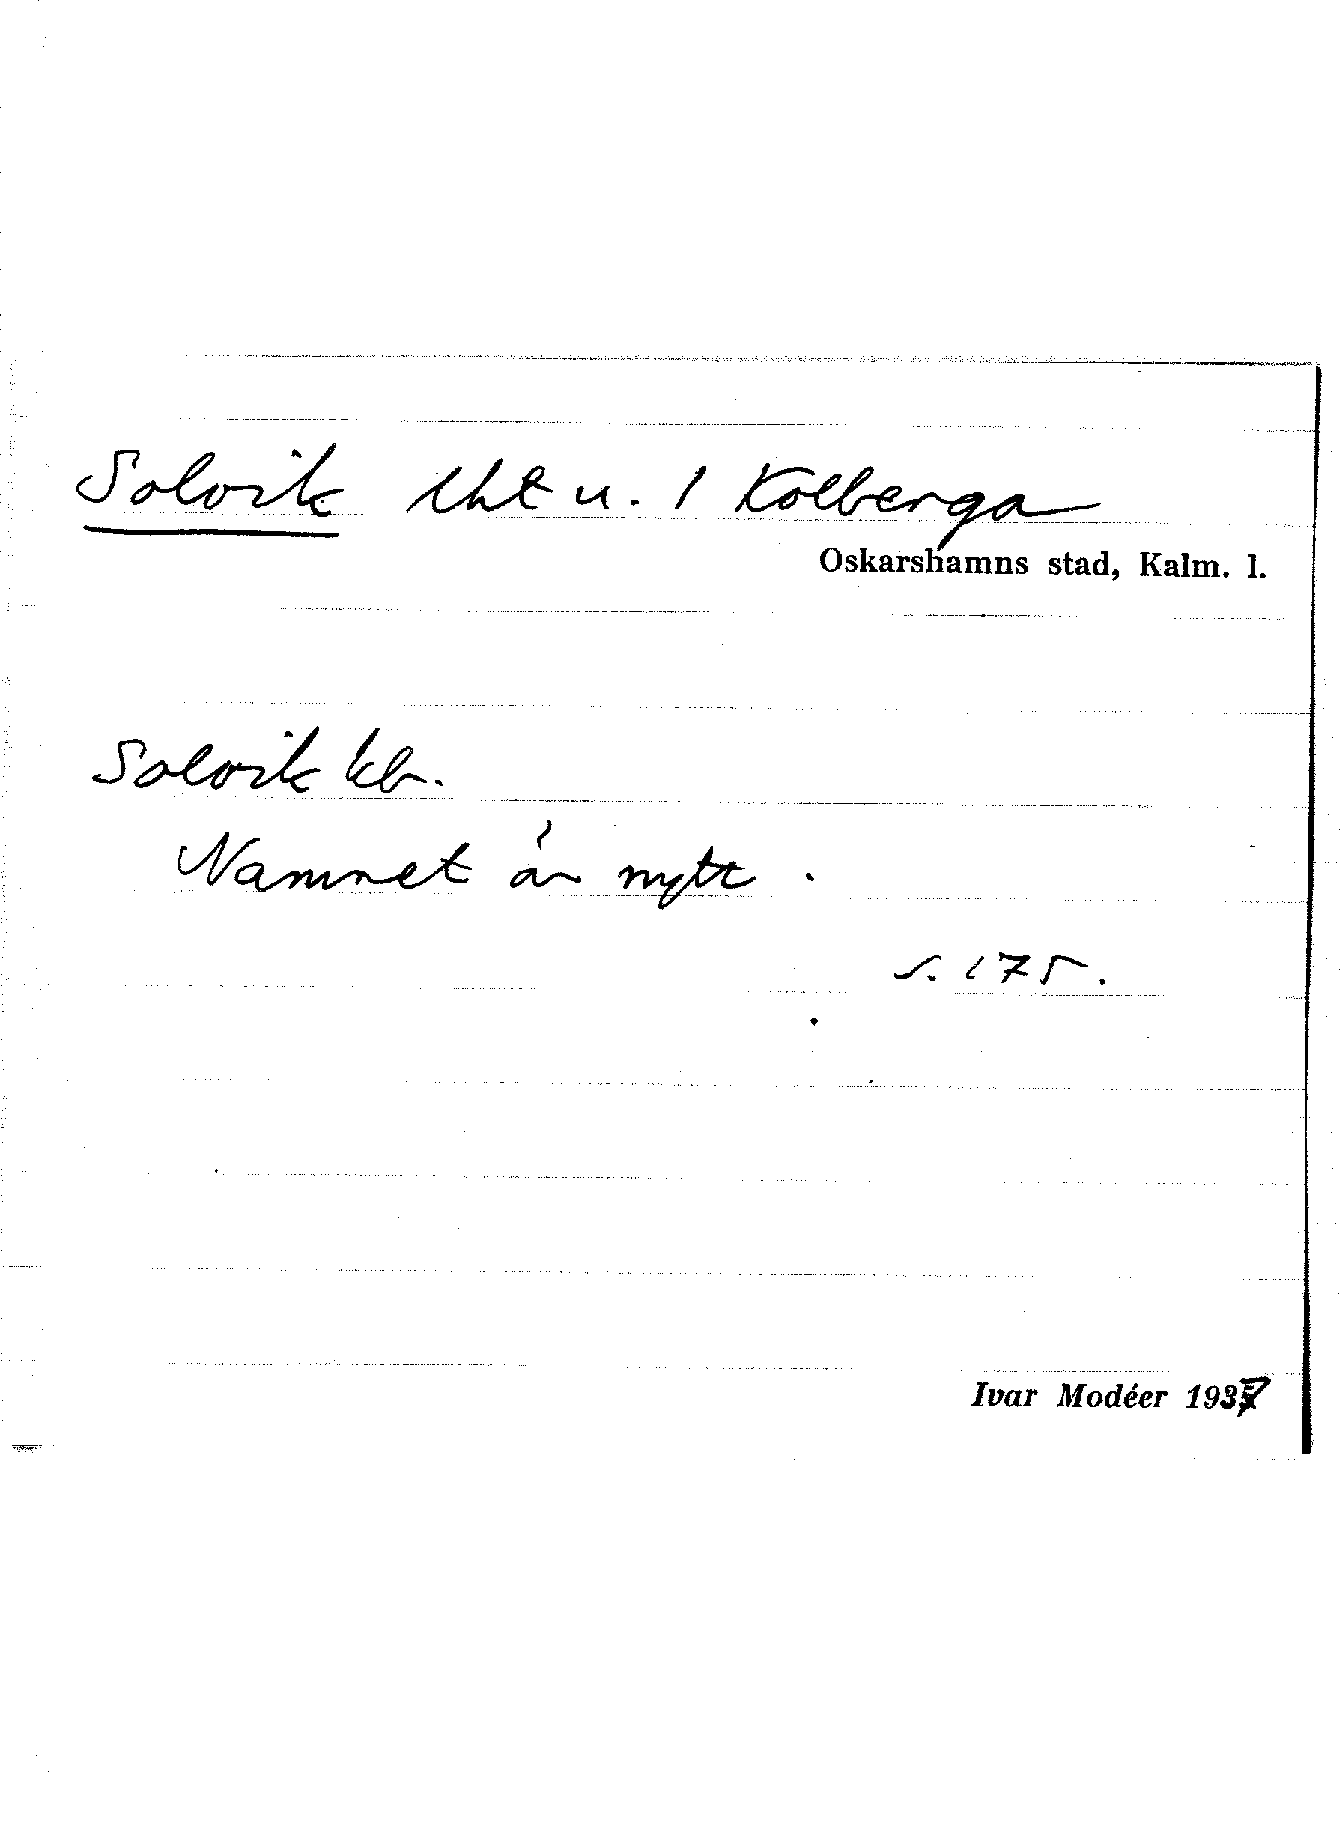 Solvik lht u. 1 Kolberga
Oskarshamns stad, Kalm. l.
Solvik kb.
Namnet är nytt.
s. 175.
Ivar Modéer 1937